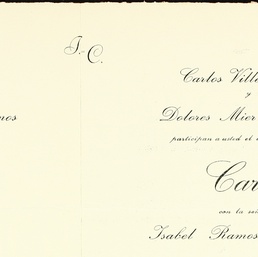 I. C.
Carlos Vill
y
Dolores Mier
participan a usted el
Car
con la
Isabel Ramos